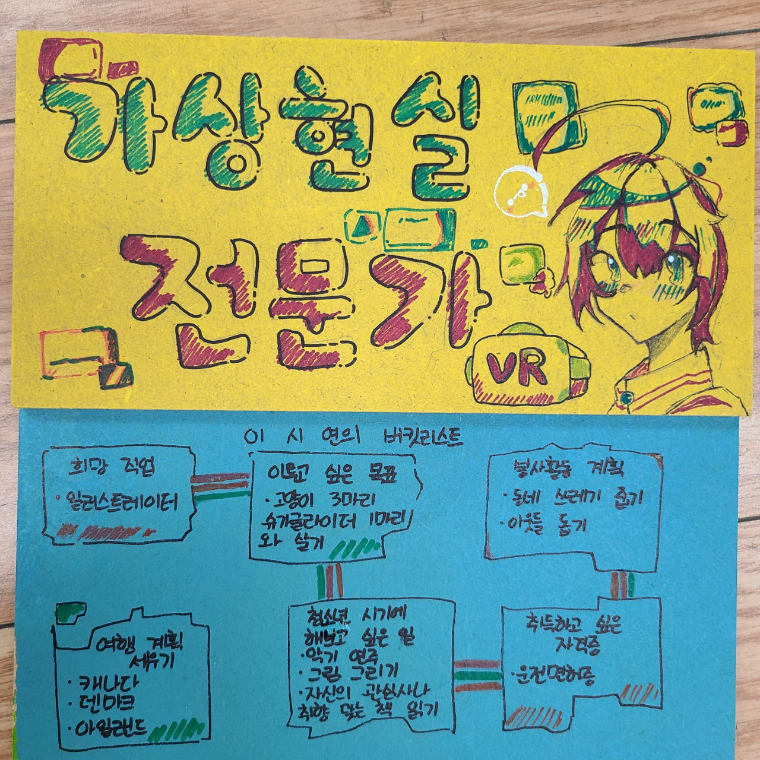 가상현실
전문가
VR
이시연의 버킷리스트
희망 직업
· 일러스트레이터
이루고 싶은 목표
· 고양이 3마리
슈가글라이더 1마리
와 살기
봉사활동 계획
· 동네 쓰레기 줍기
· 이웃들 돕기
여행 계획
세우기
· 캐나다
· 덴마크
· 아일랜드
청소년 시기에
해보고 싶은 일
· 악기 연주
· 그림 그리기
· 자신의 관심사나
취향 맞는 책 읽기
취득하고 싶은
자격증
· 운전면허증